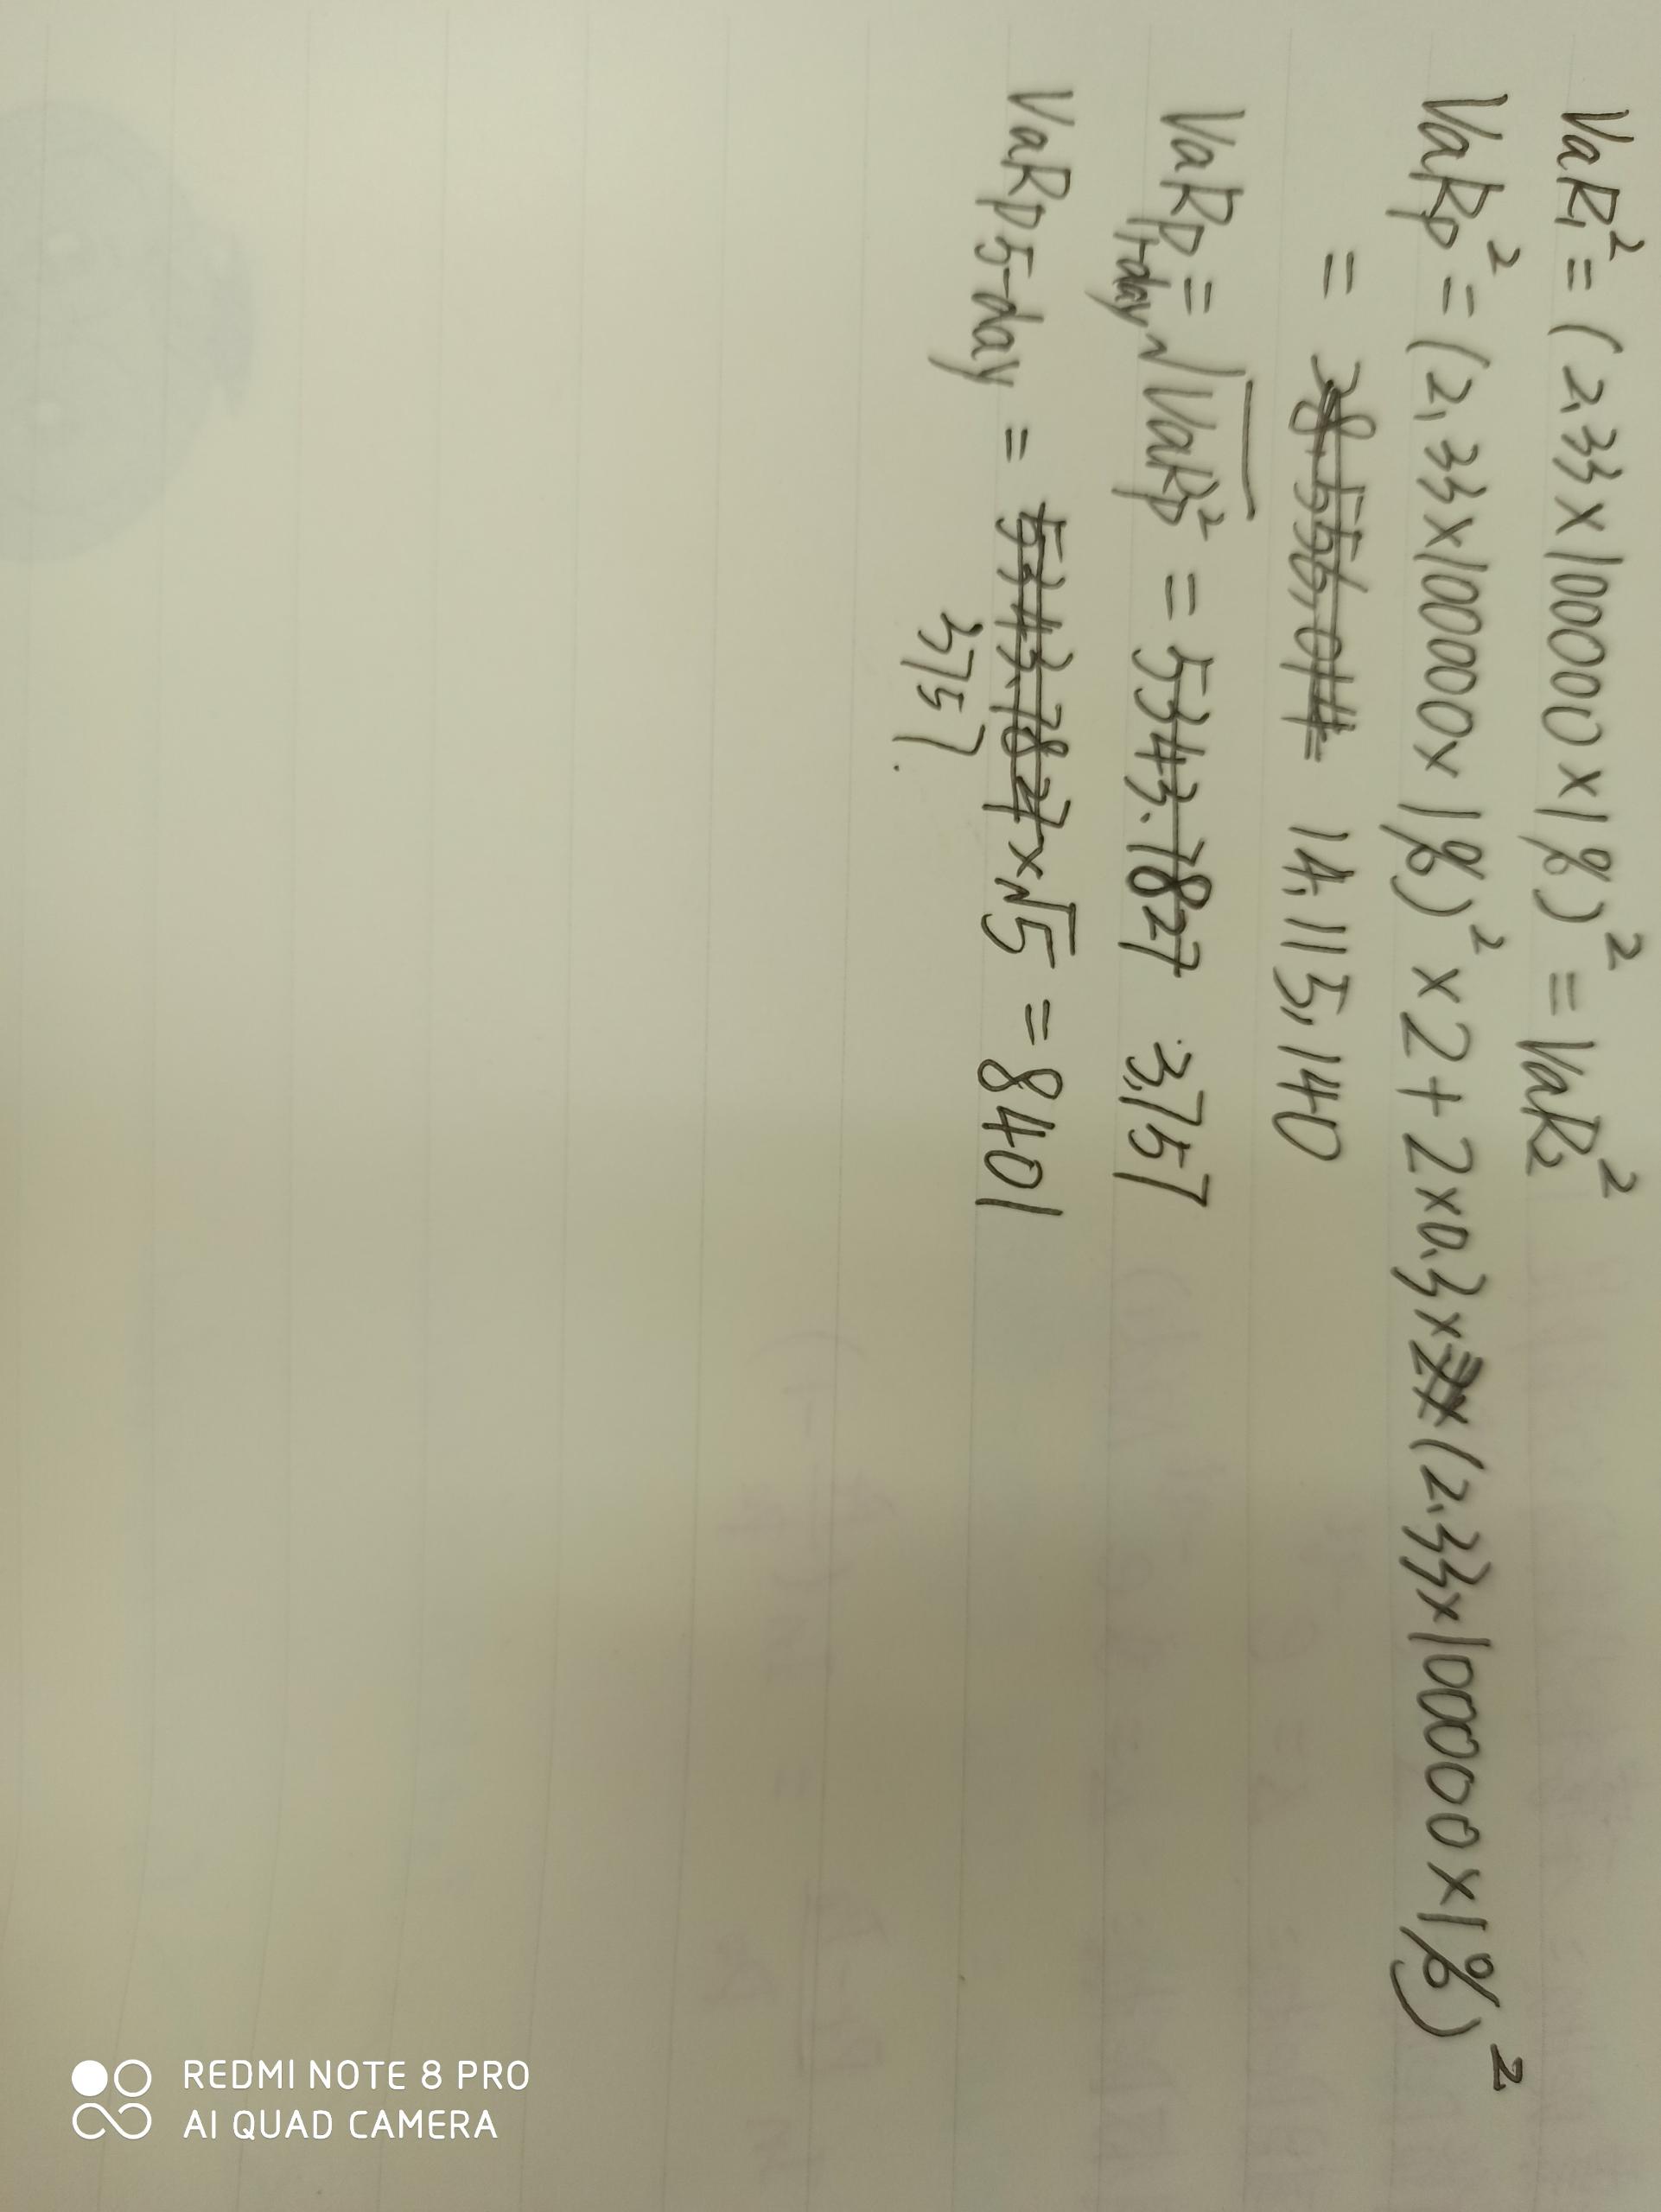 VaR₁² = (2.33×100000×1%)² = VaR₂²
VaRp² = (2.33×100000×1%)² × 2 + 2×0.3× (2.33×100000×1%)²
= 28,556,014 14,115,140
VaRp 1-day = √VaRp² = 5343.7827 3,757
VaRp 5-day = 5343.7827 ×√5 = 8401
3757.
REDMI NOTE 8 PRO
AI QUAD CAMERA